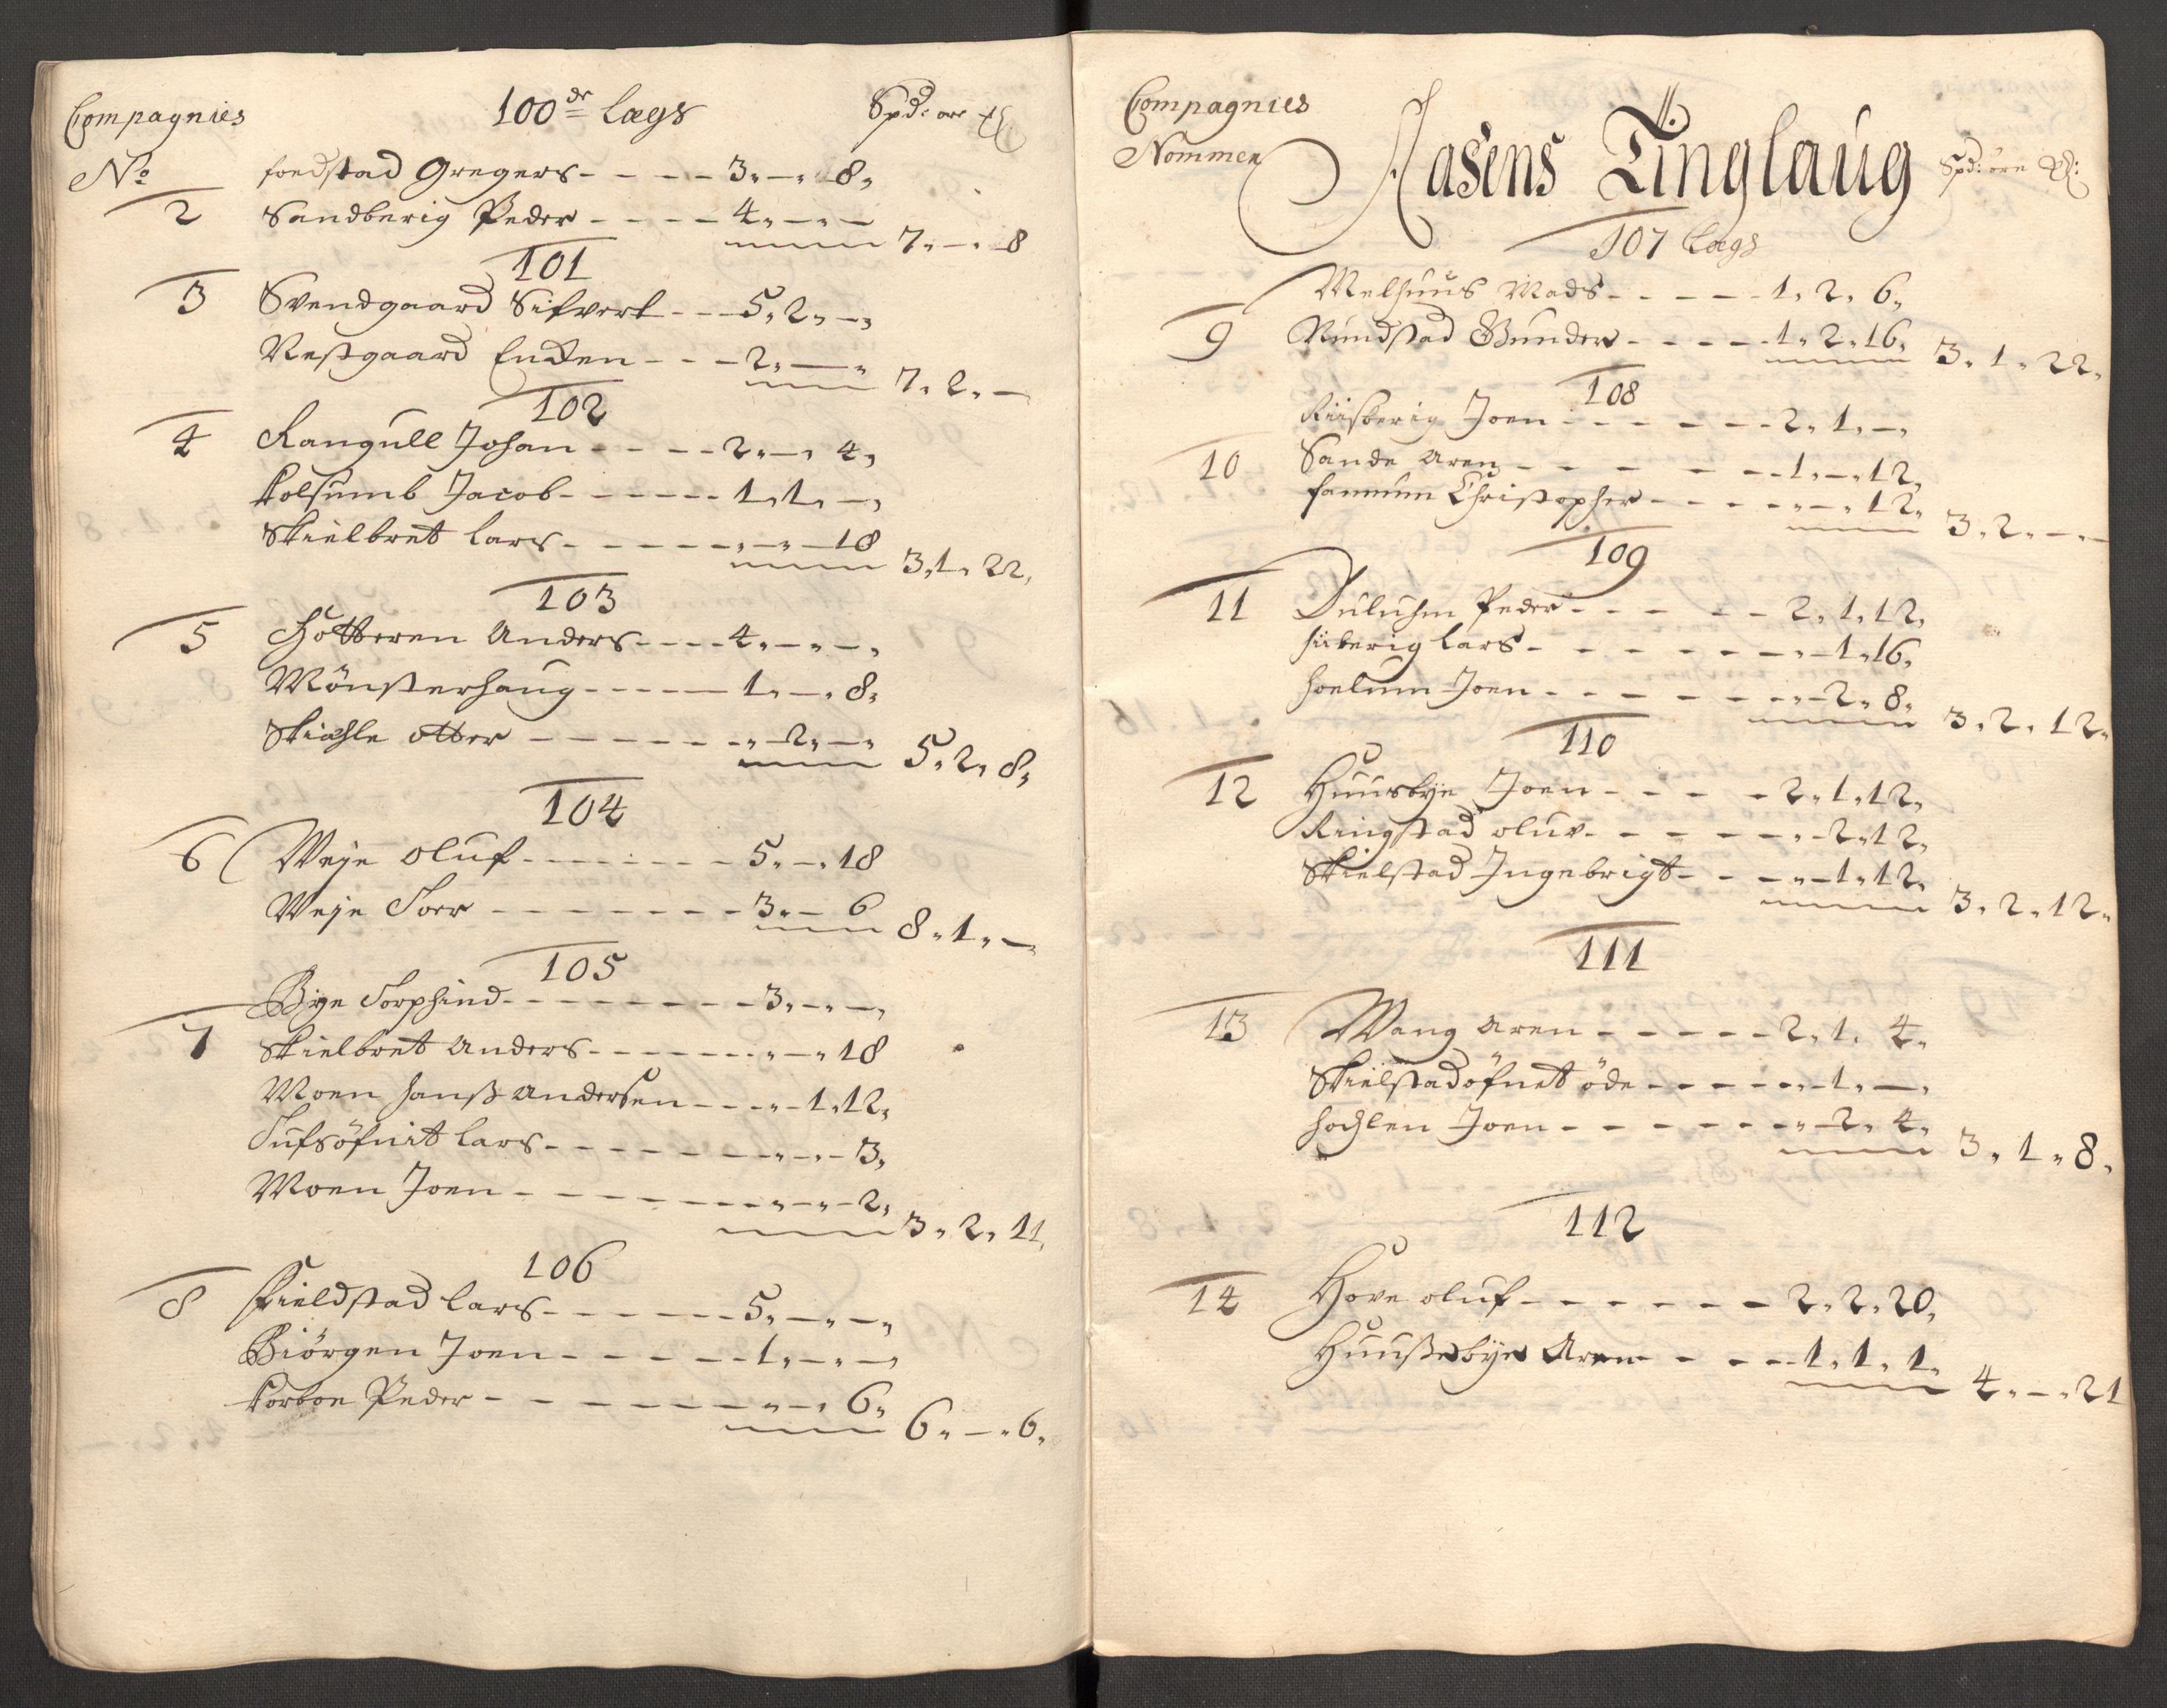 Compagnies 100de Lægs Spd: ore
No
foedstad Gregers - - - - 3 „ - „ 8 „
2 Sandberig Peder - - - - 4 „ - „ -
7 „ - „ 8
101
3 Svendgaard Sifvert - - - 5 „ 2 „ - „
Vestgaard Enken - - - 2 „ - „
7 „ 2 „ -
102
4 Rangull Johan - - - - 2 „ - „ 4 „
Kolsumb Jacob - - - - - - 1 „ 1 „ - „
Skielbret Lars - - - - - „ - „ 18
3 „ 1 „ 22 „
103
5 Hotteren Anders - - - - 4 „ - „ - „
Mönsterhaug - - - - - 1 „ - „ 8 „
Skiøhle otter - - - - - „ 2 „ - „
5 „ 2 „ 8 „
104
6 Weje oluf - - - - - - - 5 „ - „ 18
Weje Toer - - - - - - - 3 „ - 6
8 „ 1 „ -
105
Bye Torphind - - - - - - - 3 „ - „ - „
7 Skielbret Anders - - - - - - „ - „ 18
Moen Hanß Andersen - - - „ 1 „ 12 „
Tufsöfnit Lars - - - - - - „ - „ 3 „
Moen Joen - - - - - - - „ - „ 2 „
3 „ 2 „ 11 „
106
8 Fieldstad Lars - - - - - - 5 „ - „ - „
Biörgen Joen - - - - - 1 „ - „ - „
Korboe Peder - - - - - - „ - „ 6 „
6 „ - „ 6 „
Compagnies
Nommer Aasens Tinglaug Spd: öre
107 Lægs
Melhuus Mads - - - - - 1 „ 2 „ 6 „
9 Rundstad Gunder - - - - 1 „ 2 „ 16 „
3 „ 1 „ 22 „
108
Riisberig Joen - - - - - - 2 „ 1 „ - „
10 Sande Aren - - - - - - 1 „ - „ 12 „
fammum Christopher - - - „ - „ 12 „
3 „ 2 „ - „
109
11 Duluhm Peder - - - - - - 2 „ 1 „ 12 „
Lars - - - - - - - „ 1 „ 16 „
Hoelum Joen - - - - - - „ 2 „ 8 „
3 „ 2 „ 12 „
110
12 Huusbye Joen - - - - 2 „ 1 „ 12 „
Ringstad oluv - - - - - - „ 2 „ 12 „
Skielstad Ingebrigt - - - „ 1 „ 12 „
3 „ 2 „ 12 „
111
13 Wang Aren - - - - - 2 „ 1 „ 4 „
Skielstadöfnet öde - - - - - „ 1 „ - „
Hoglen Joen - - - - - - „ 2 „ 4 „
3 „ 1 „ 8 „
112
14 Hove oluf - - - - - - 2 „ 2 „ 20 „
Huußebye Aren - - - 1 „ 1 „ 1 „
4 „ - „ 21